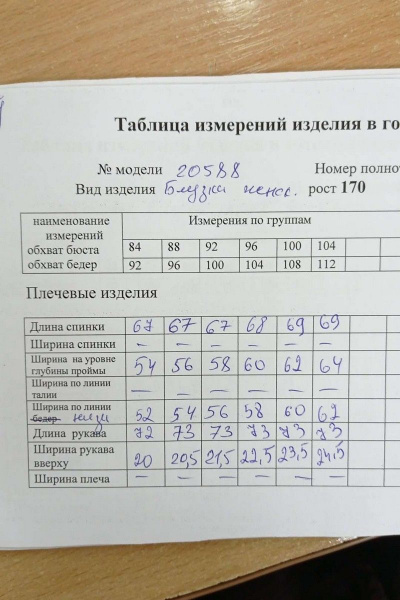 Таблица измерений изделия в го
№ модели 20588 Номер полнот
Вид изделия Блузка женск. рост 170
наименование измерений Измерения по группам
обхват бюста 84 88 92 96 100 104
обхват бедер 92 96 100 104 108 112
Плечевые изделия
Длина спинки 67 67 67 68 69 69
Ширина спинки – – – – – –
Ширина на уровне глубины проймы 54 56 58 60 62 64
Ширина по линии талии – – – – – –
Ширина по линии бедер низа 52 54 56 58 60 62
Длина рукава 72 73 73 73 73 73
Ширина рукава вверху 20 20,5 21,5 22,5 23,5 24,5
Ширина плеча – – – – – –